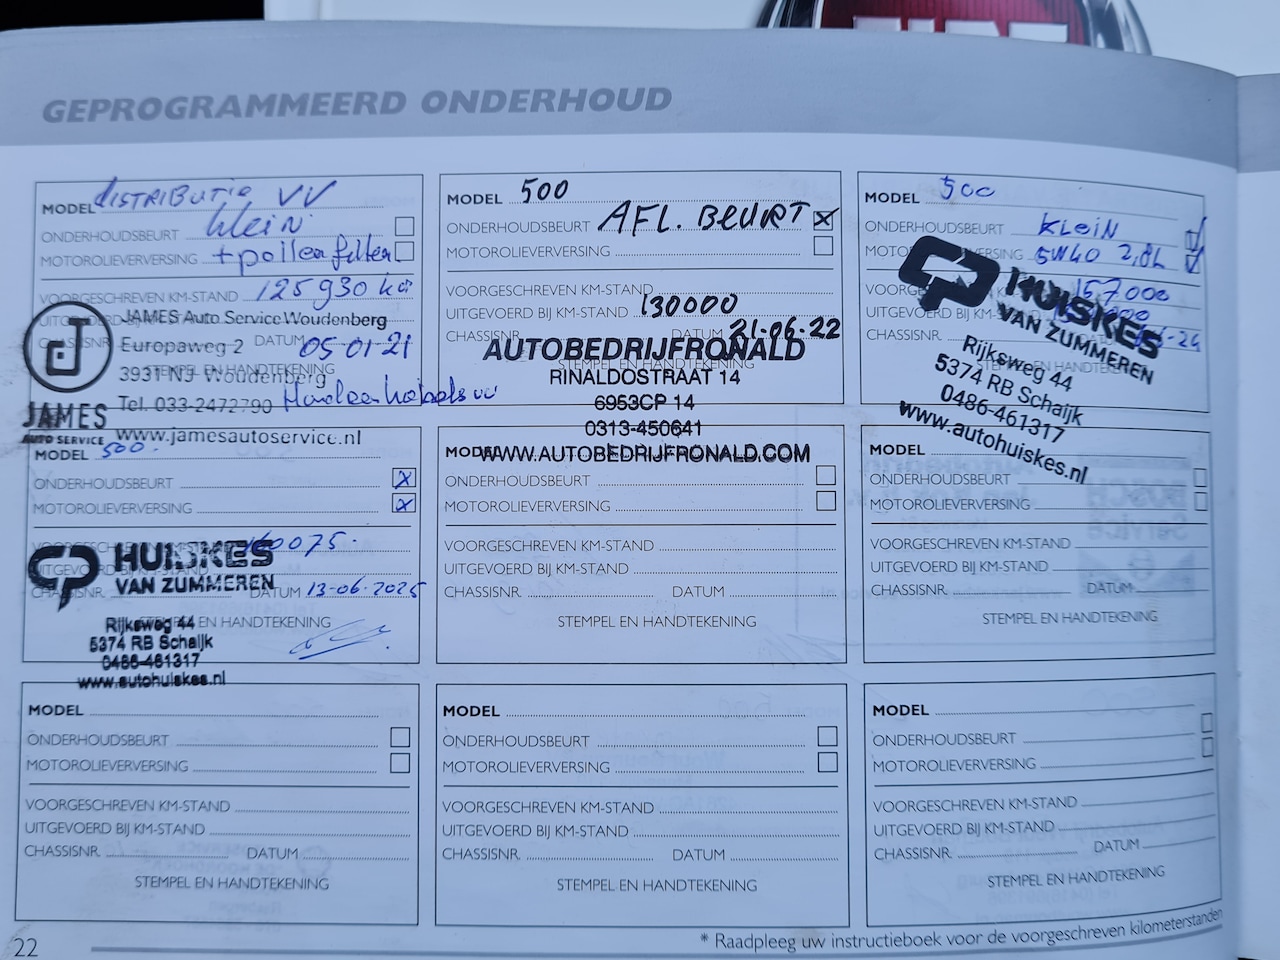 GEPROGRAMMEERD ONDERHOUD
MODEL DISTRIBUTIE VV
ONDERHOUDSBEURT klein
MOTOROLIEVERVERSING + pollenfilter
VOORGESCHREVEN KM-STAND 125930 km
JAMES Auto Service Woudenberg
Europaweg 2
DATUM 05 01 21
3931 NJ Woudenberg
STEMPEL EN HANDTEKENING
Tel. 033-2472790
JAMES
AUTO SERVICE
www.jamesautoservice.nl
MODEL 500
ONDERHOUDSBEURT AFL. BEURT X
MOTOROLIEVERVERSING
VOORGESCHREVEN KM-STAND
UITGEVOERD BIJ KM-STAND 130000
CHASSISNR. DATUM 21-06-22
AUTOBEDRIJFRONALD
STEMPEL EN HANDTEKENING
RINALDOSTRAAT 14
6953CP 14
0313-450641
WWW.AUTOBEDRIJFRONALD.COM
MODEL 500
ONDERHOUDSBEURT KLEIN
5W40 2,8L
157000
UITGEVOERD BIJ KM-STAND
CHASSISNR.
HUISKES
VAN ZUMMEREN
Rijksweg 44
5374 RB Schaijk
0486-461317
www.autohuiskes.nl
MODEL 500.
ONDERHOUDSBEURT X
MOTOROLIEVERVERSING X
160075.
HUISKES
VAN ZUMMEREN
CHASSISNR. DATUM 13-06-2025
STEMPEL EN HANDTEKENING
Rijksweg 44
5374 RB Schaijk
0486-461317
www.autohuiskes.nl
MODEL
ONDERHOUDSBEURT
MOTOROLIEVERVERSING
VOORGESCHREVEN KM-STAND
UITGEVOERD BIJ KM-STAND
CHASSISNR. DATUM
STEMPEL EN HANDTEKENING
MODEL
ONDERHOUDSBEURT
MOTOROLIEVERVERSING
VOORGESCHREVEN KM-STAND
UITGEVOERD BIJ KM-STAND
CHASSISNR. DATUM
STEMPEL EN HANDTEKENING
MODEL
ONDERHOUDSBEURT
MOTOROLIEVERVERSING
VOORGESCHREVEN KM-STAND
UITGEVOERD BIJ KM-STAND
CHASSISNR. DATUM
STEMPEL EN HANDTEKENING
MODEL
ONDERHOUDSBEURT
MOTOROLIEVERVERSING
VOORGESCHREVEN KM-STAND
UITGEVOERD BIJ KM-STAND
CHASSISNR. DATUM
STEMPEL EN HANDTEKENING
MODEL
ONDERHOUDSBEURT
MOTOROLIEVERVERSING
VOORGESCHREVEN KM-STAND
UITGEVOERD BIJ KM-STAND
CHASSISNR. DATUM
STEMPEL EN HANDTEKENING
22
* Raadpleeg uw instructieboek voor de voorgeschreven kilometerstanden